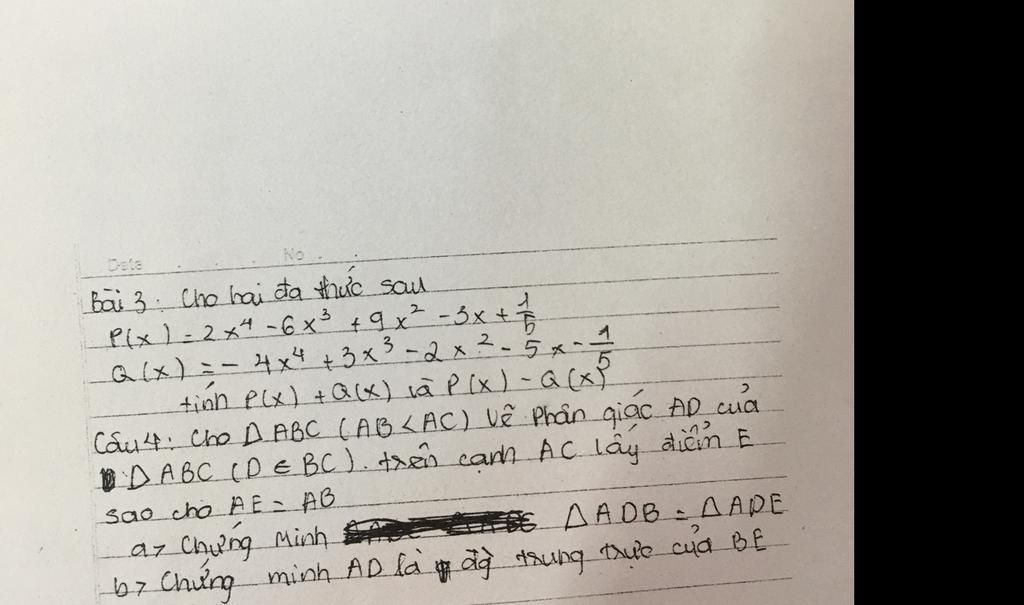 Date No
Bài 3: Cho hai đa thức sau
P(x) = 2x⁴ - 6x³ + 9x² - 3x + 1/5
Q(x) = - 4x⁴ + 3x³ - 2x² - 5x - 1/5
tính P(x) + Q(x) và P(x) - Q(x)
Câu 4: Cho ΔABC (AB < AC) Vẽ Phân giác AD của
ΔABC (D ∈ BC). trên cạnh AC lấy điểm E
sao cho AE = AB
a> Chứng Minh ΔADB = ΔADE
b> Chứng minh AD là đg trung trực của BE